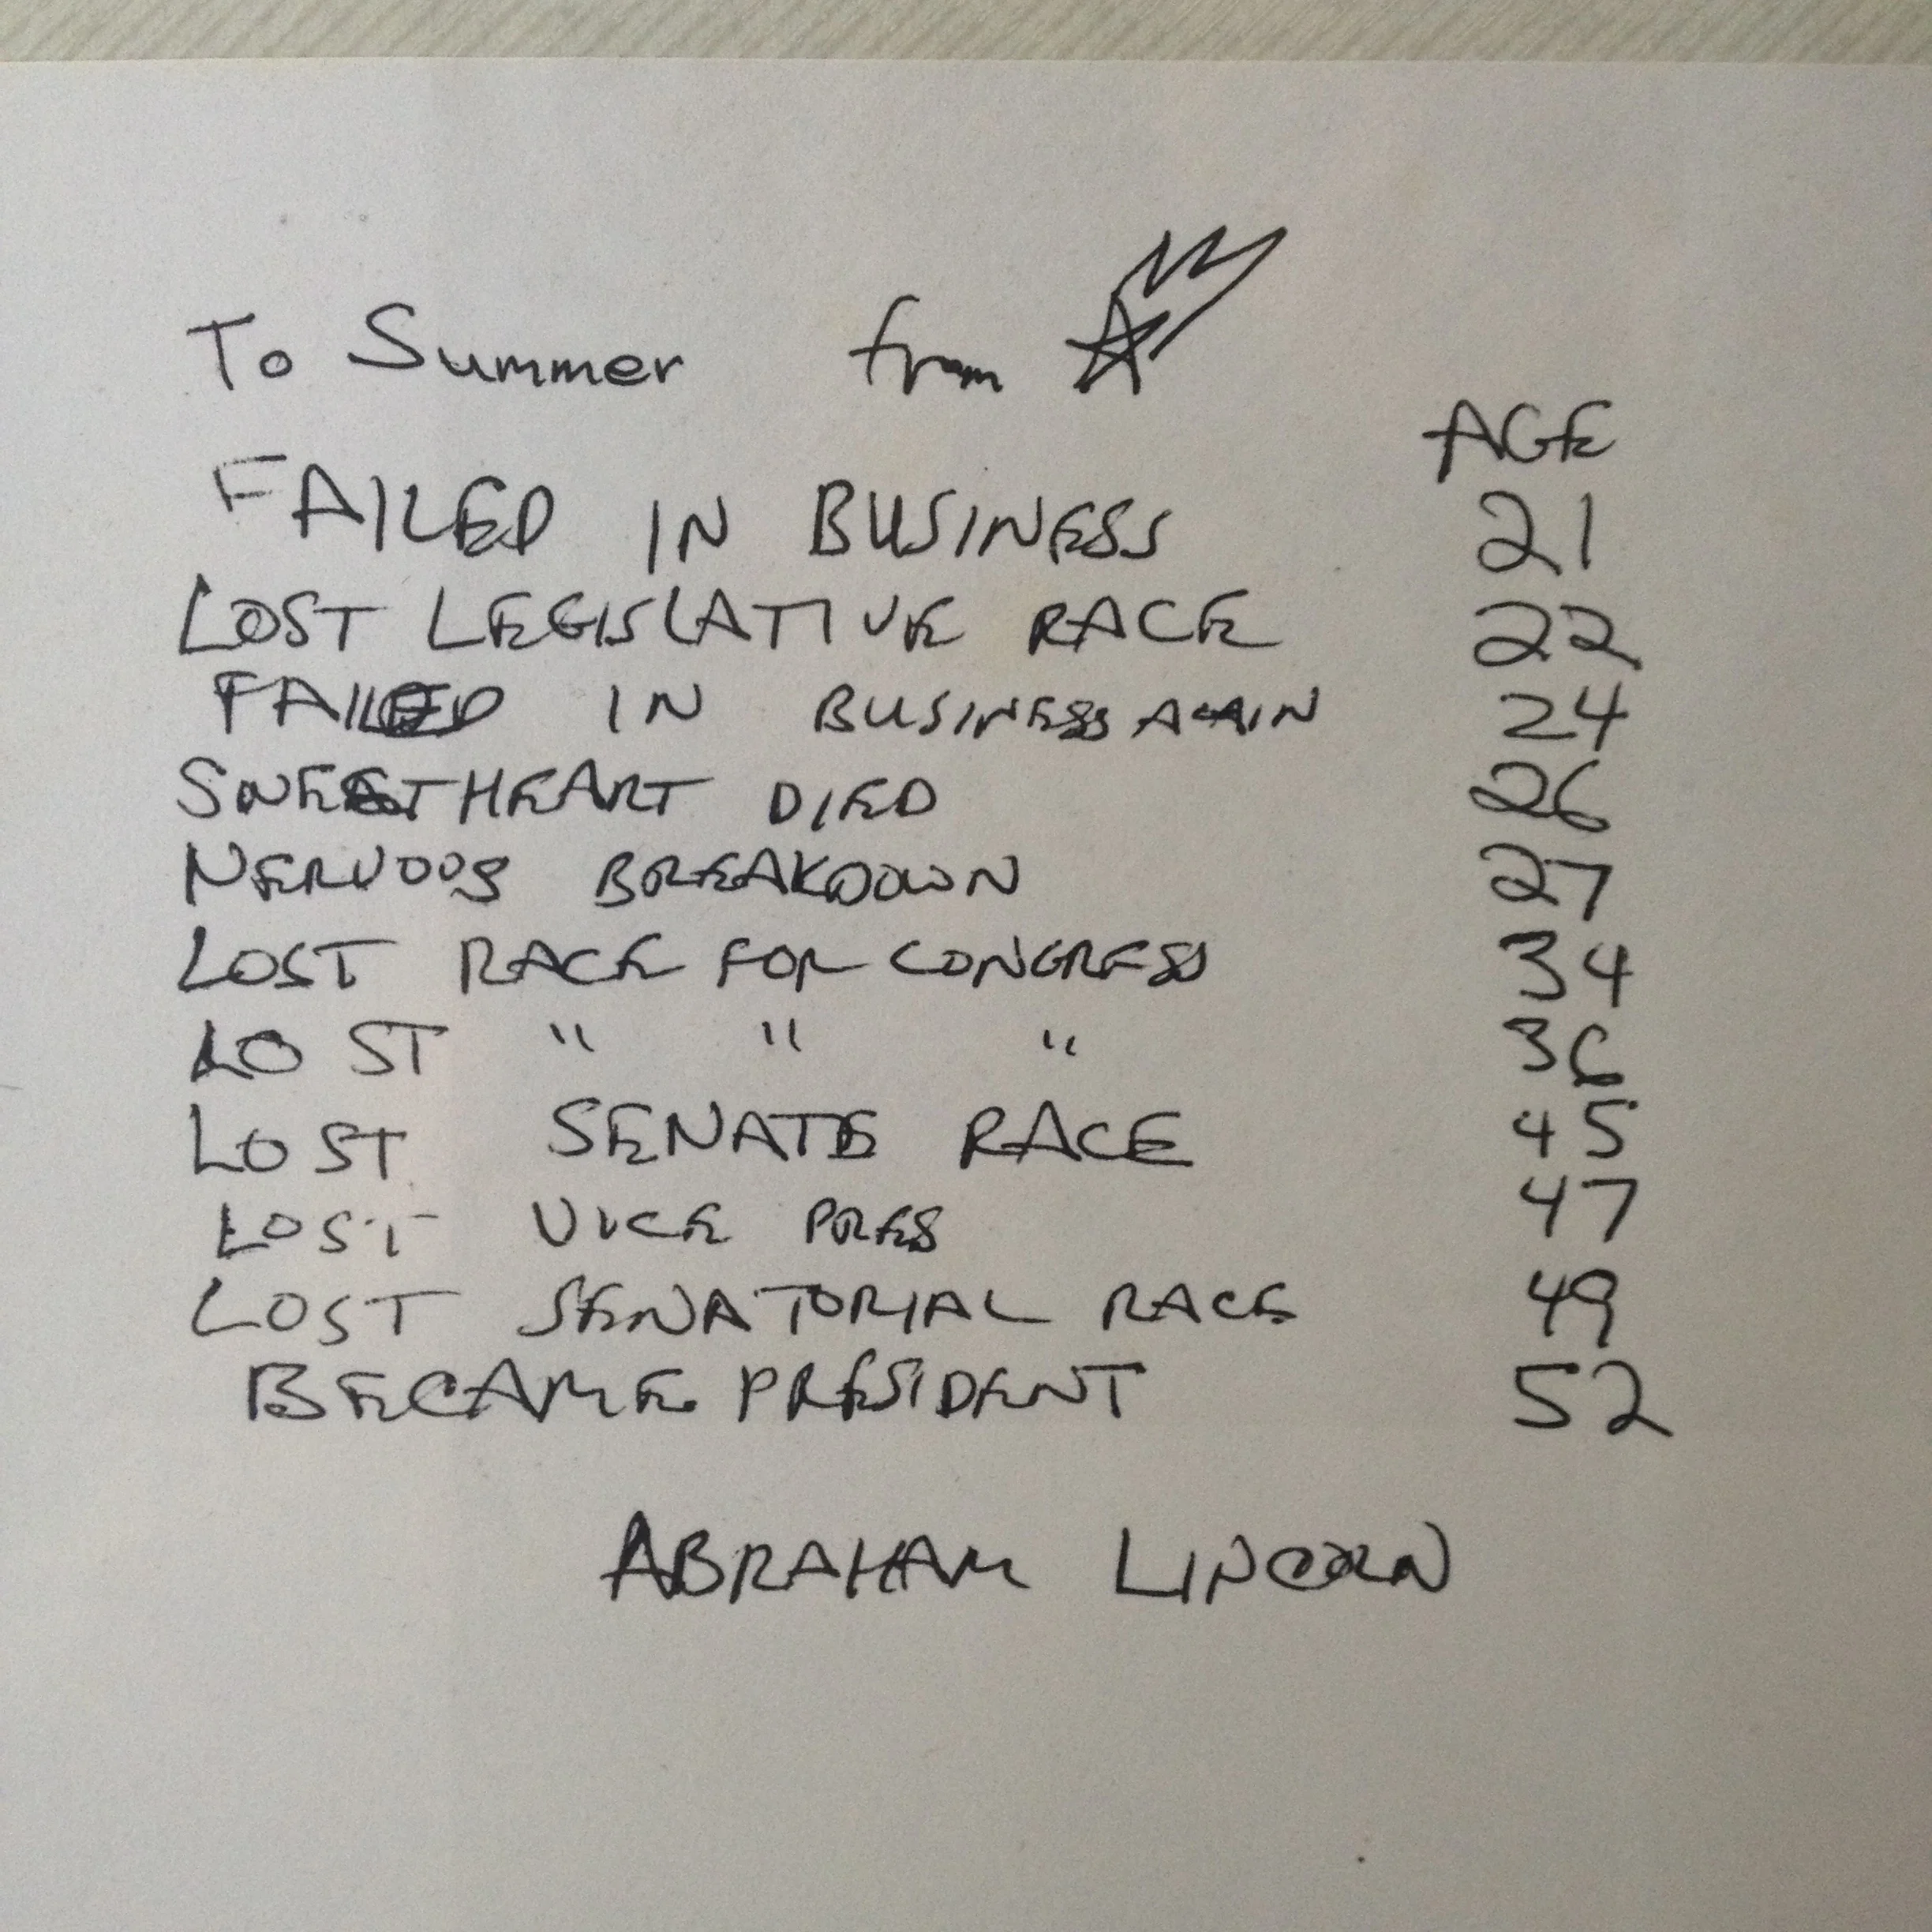 To Summer from
AGE
FAILED IN BUSINESS 21
LOST LEGISLATIVE RACE 22
FAILED IN BUSINESS AGAIN 24
SWEETHEART DIED 26
NERVOUS BREAKDOWN 27
LOST RACE FOR CONGRESS 34
LOST " " " 36
LOST SENATE RACE 45
LOST VICE PRES 47
LOST SENATORIAL RACE 49
BECAME PRESIDENT 52
ABRAHAM LINCOLN